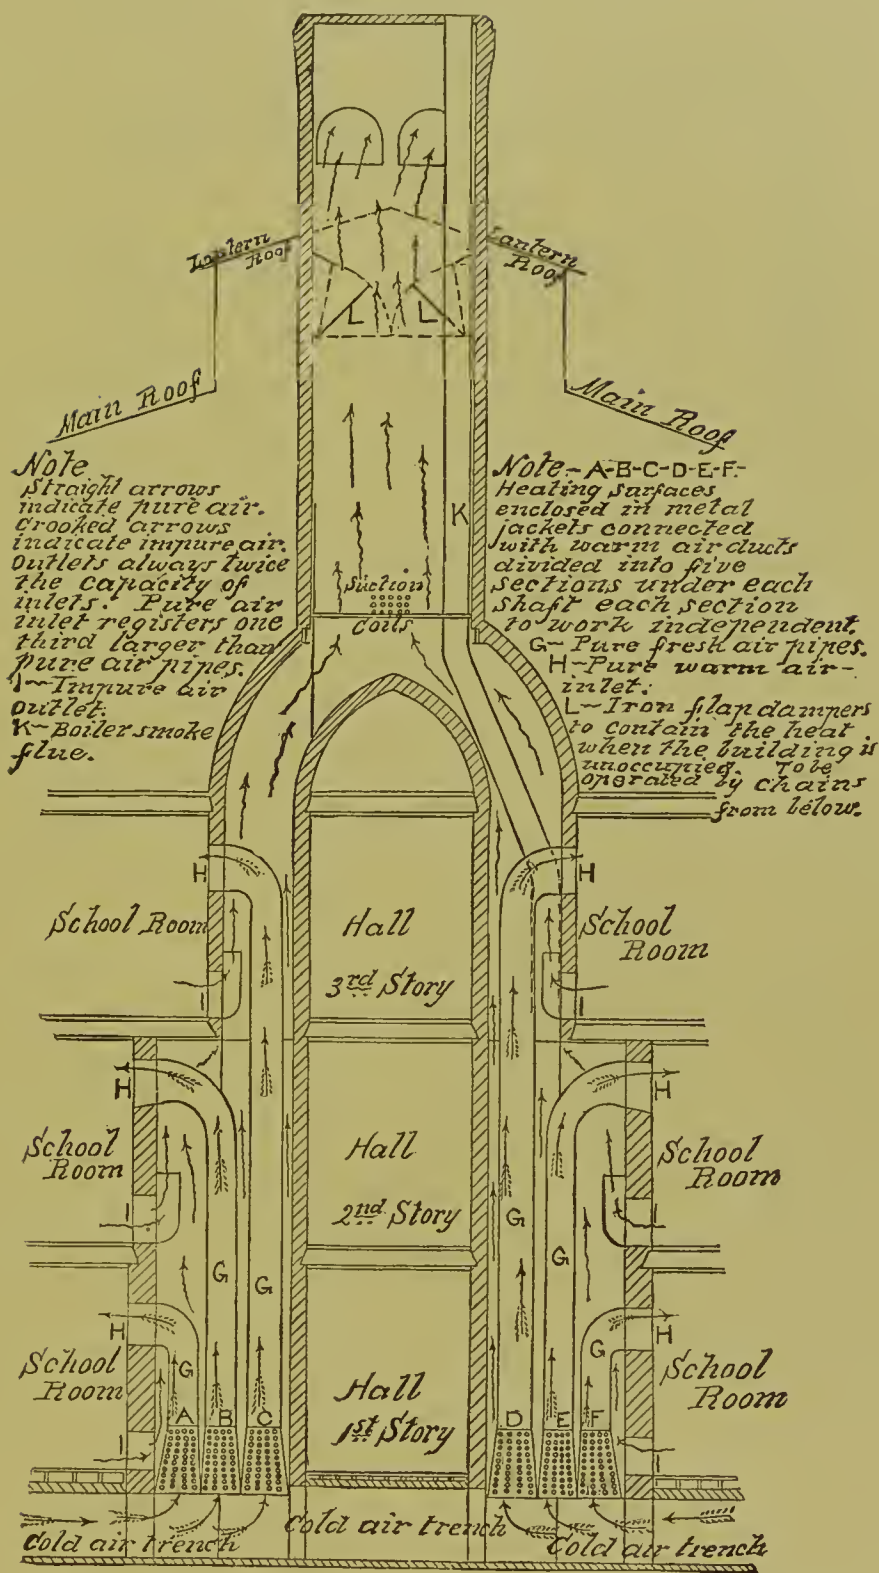 Lantern
Roof
Lantern
Roof
L L
Main Roof
Main Roof
Note
Straight arrows
indicate pure air.
Crooked arrows
indicate impure air.
Outlets always twice
the capacity of
inlets. Pure air
inlet registers one
third larger than
pure air pipes.
I~Impure air
outlet.
K~Boiler smoke
flue.
K
Suction
Coils
Note-A-B-C-D-E-F-
Heating surfaces
enclosed in metal
jackets connected
with warm air ducts
divided into five
sections under each
shaft each section
to work independent.
G~Pure fresh air pipes.
H~Pure warm air-
inlet.
L~Iron flap dampers
to contain the heat
when the building is
unoccupied. To be
operated by chains
from below.
H H
School Room
Hall
3rd Story
School
Room
I I
H H
School
Room
Hall
2nd Story
School
Room
I I
G G G G
H H
School
Room
G G
Hall
1st Story
School
Room
A B C D E F
I I
Cold air trench
Cold air trench
Cold air trench